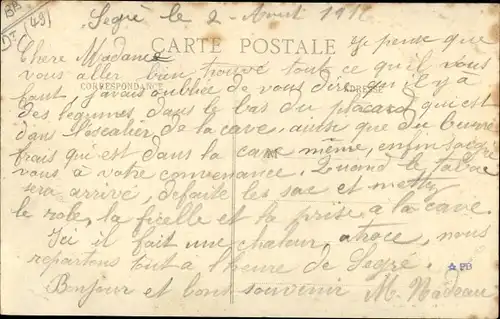 49
Segré le 2 Aout 191
CARTE POSTALE
CORRESPONDANCE
ADRESSE
Chere Madame je pense que
vous aller bien trouvé tout ce qu'il vous
faut j'avais oubliée de vous dire qu'il y a
des legumes dans le bas du placard qui est
dans l'escalier de la cave, ainsi que du beurre
frais qui est dans la cave même, enfin
vous à votre convenance. Quand le tabac
sera arrivé, defaite les sac et mettez
le role, la ficelle et la prise à la cave.
Ici il fait une chaleur atroce, nous
repartons tout à l'heure de Segré.
Bonjour et bons souvenir M. Nadeau
PB